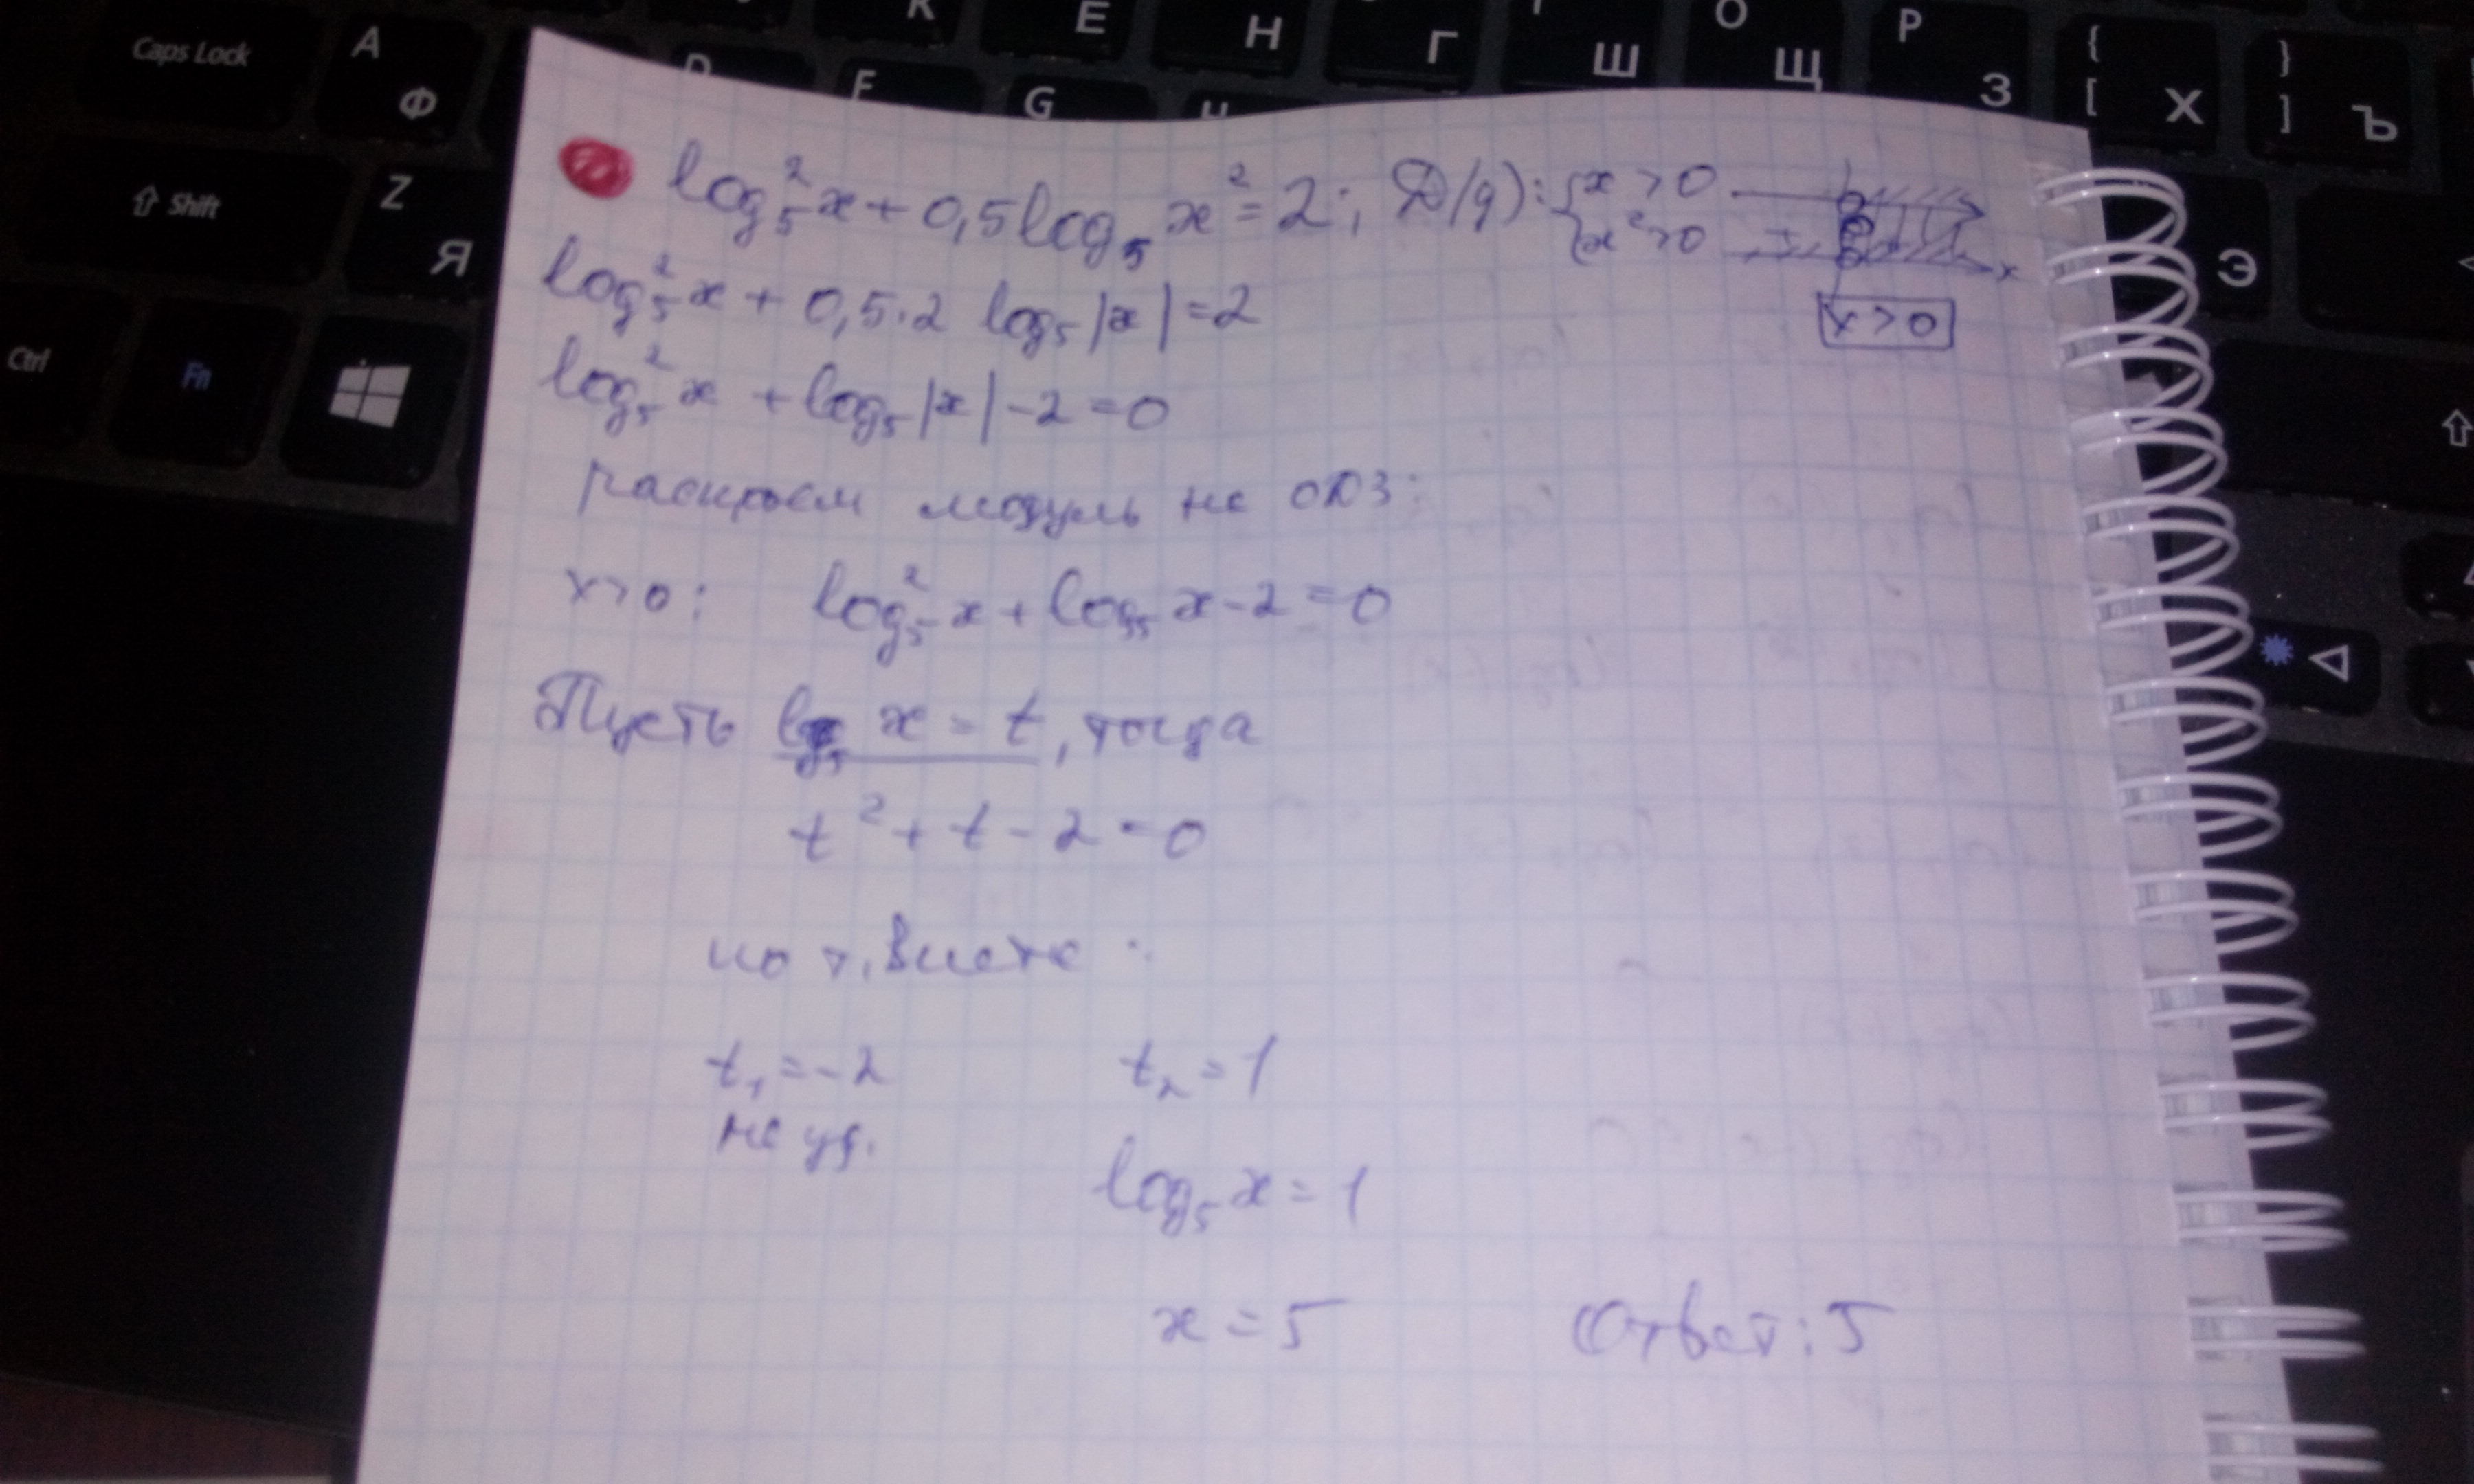 Caps Lock A Ф D F G H К Е Н Г Ш О Щ Р З { [ Х } ] Ъ
Shift Z Я Э
Ctrl Fn
log₅²x + 0,5log₅ x² = 2; D(y): {x > 0
{x² > 0
x
x > 0
log₅²x + 0,5·2 log₅|x| = 2
log₅²x + log₅|x| - 2 = 0
раскроем модуль на ОДЗ:
x > 0: log₅²x + log₅x - 2 = 0
Пусть log₅ x = t, тогда
t² + t - 2 = 0
по т. Виета:
t₁ = -2 t₂ = 1
не уд.
log₅x = 1
x = 5 Ответ: 5